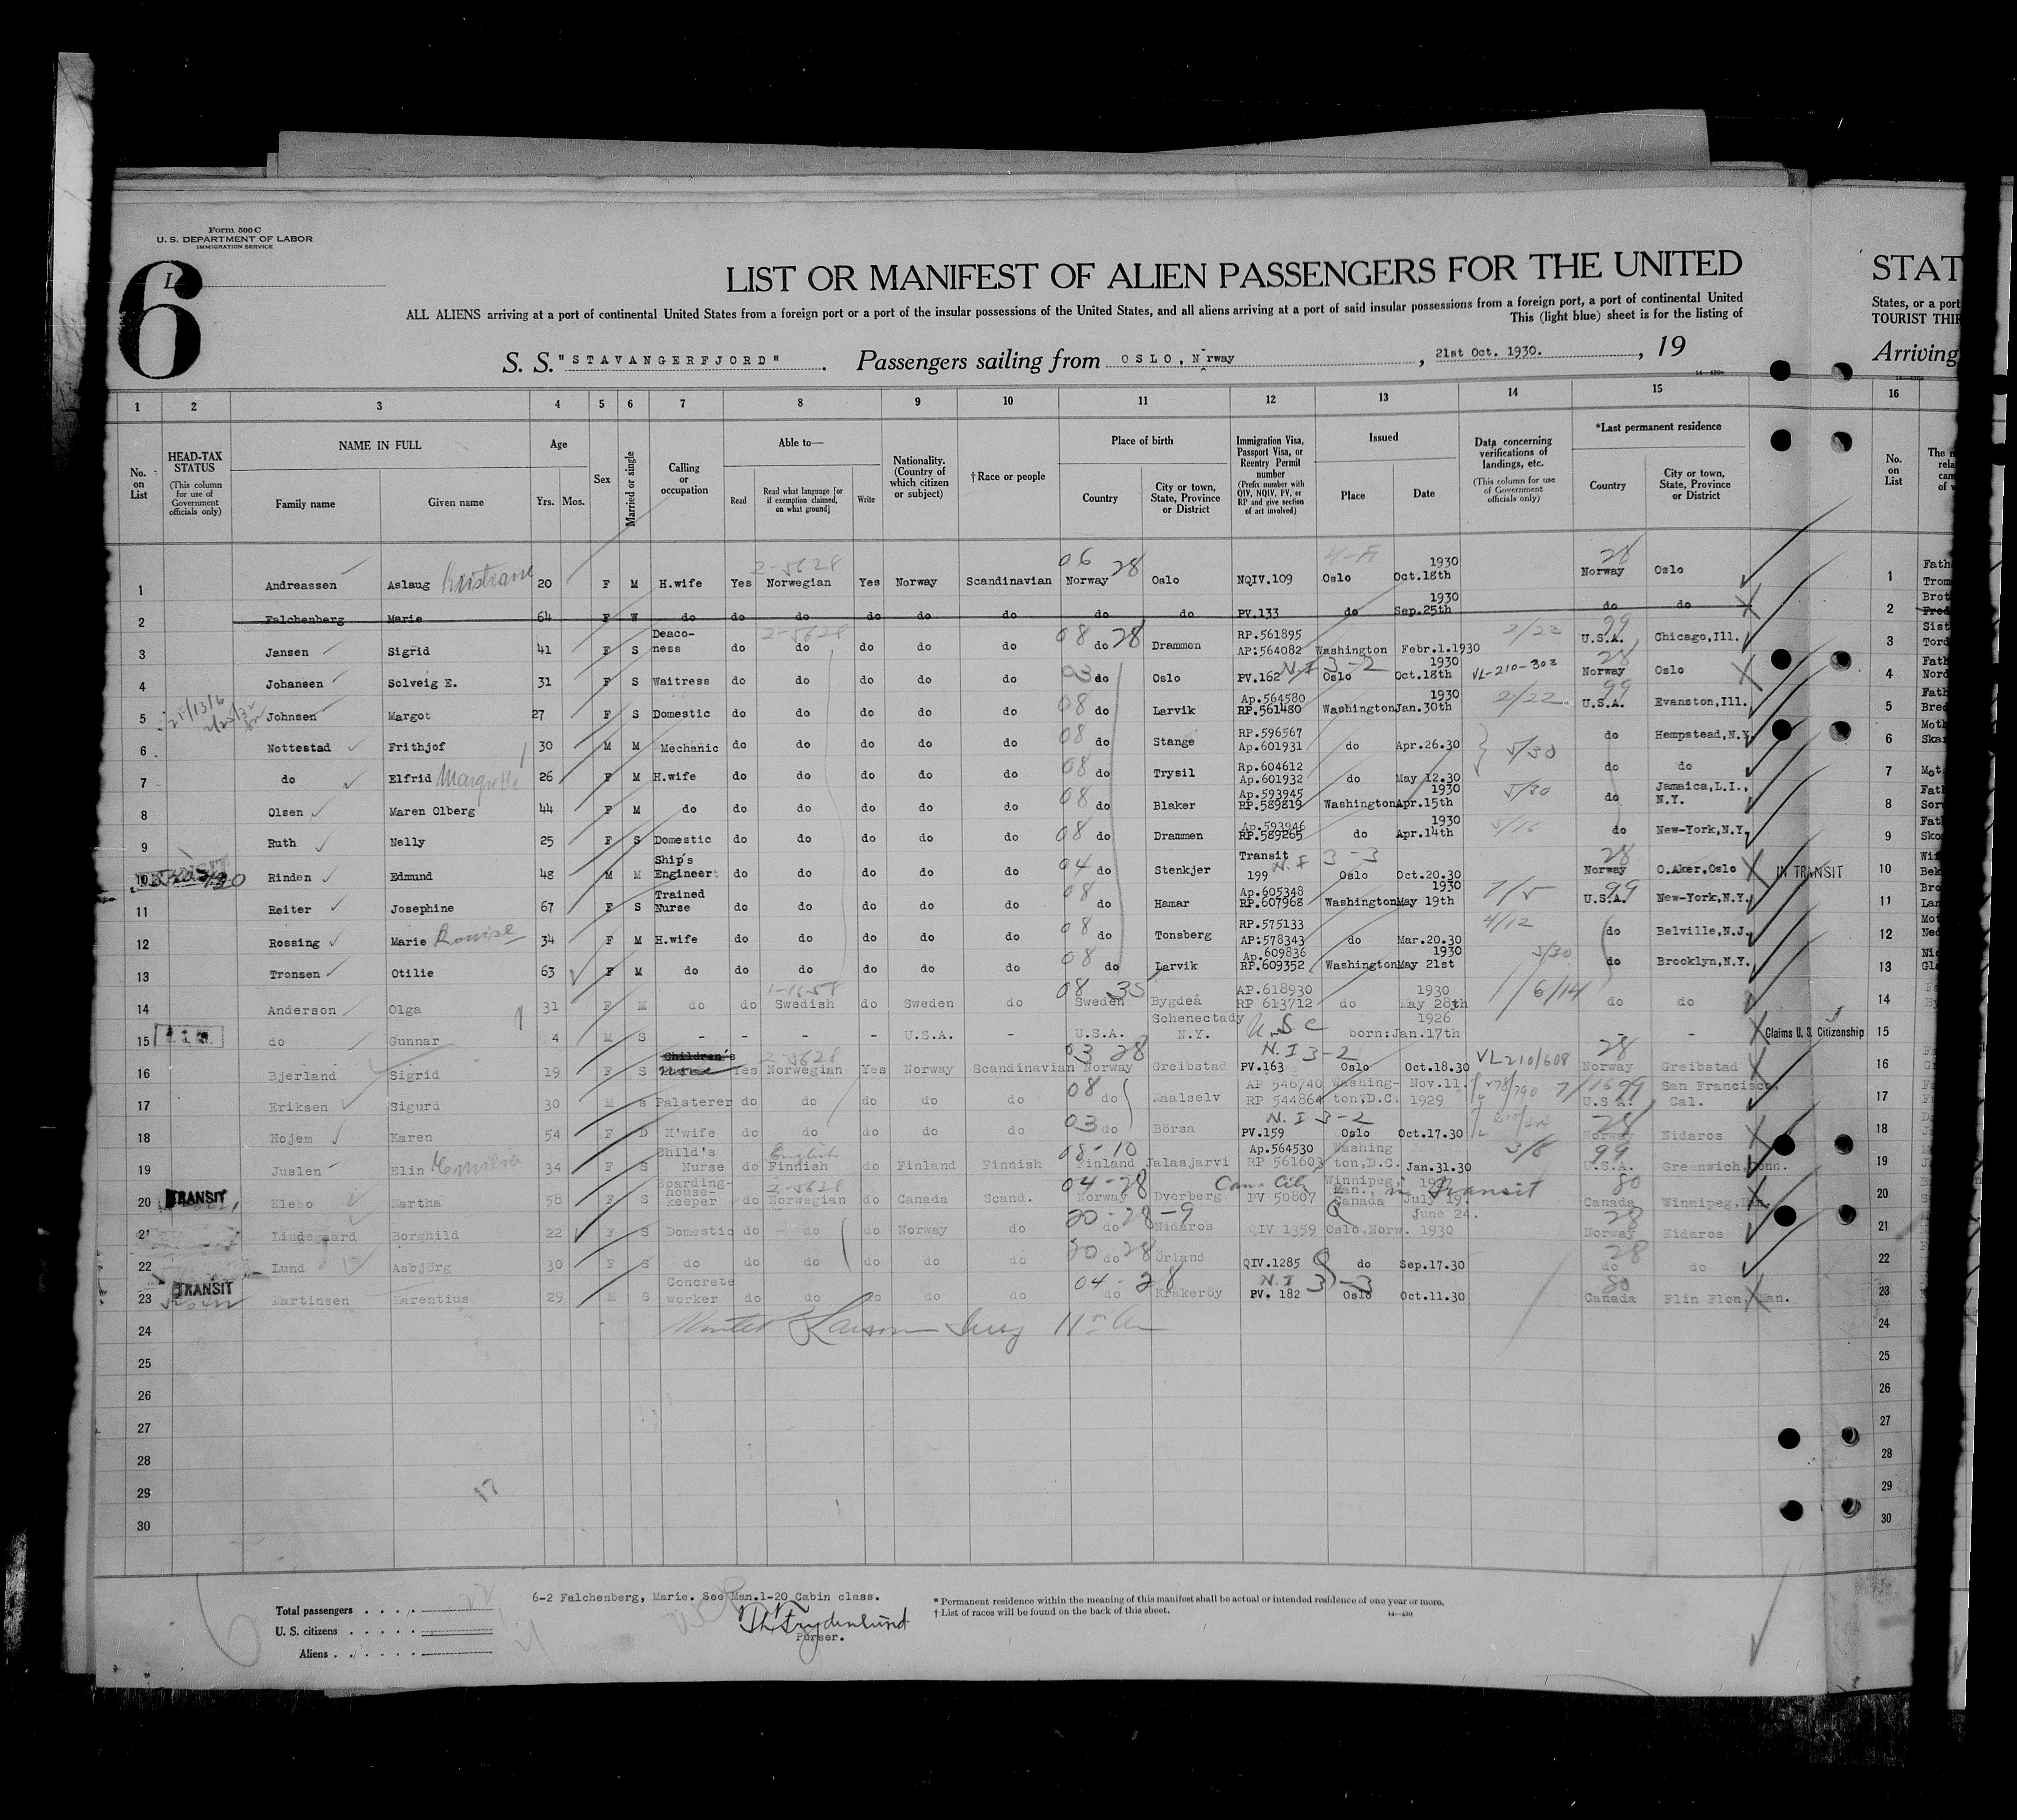 Form 500 C
U. S. DEPARTMENT OF LABOR
IMMIGRATION SERVICE
6
LIST OR MANIFEST OF ALIEN PASSENGERS FOR THE UNITED
STAT
ALL ALIENS arriving at a port of continental United States from a foreign port or a port of the insular possessions of the United States, and all aliens arriving at a port of said insular possessions from a foreign port, a port of continental United
States, or a port
This (light blue) sheet is for the listing of
TOURIST THIR
S. S. "STAVANGERFJORD". Passengers sailing from OSLO, Norway, 21st Oct. 1930., 19
Arriving
1 2 3 4 5 6 7 8 9 10 11 12 13 14 15 16
No. on List
HEAD-TAX STATUS (This column for use of Government officials only)
NAME IN FULL Family name Given name
Age Yrs. Mos.
Sex
Married or single
Calling or occupation
Able to— Read Read what language [or if exemption claimed, on what ground] Write
Nationality. (Country of which citizen or subject)
†Race or people
Place of birth Country City or town, State, Province or District
Immigration Visa, Passport Visa, or Reentry Permit number (Prefix number with QIV, NQIV, PV, or RP and give section of act involved)
Issued Place Date
Data concerning verifications of landings, etc. (This column for use of Government officials only)
*Last permanent residence Country City or town, State, Province or District
No. on List
1 Andreassen Aslaug 20 F M H.wife Yes 2-5628 Norwegian Yes Norway Scandinavian 06 Norway 28 Oslo NQIV.109 Oslo 1930 Oct.18th 28 Norway Oslo 1
2 Falchenberg Marie 64 F W do do do do do do do do PV.133 do 1930 Sep.25th do do 2
3 Jansen Sigrid 41 F S Deaconess do 2-5628 do do do do 08 do 28 Drammen RP.561895 AP:564082 Washington Febr.1.1930 2/23 99 U.S.A. Chicago,Ill. 3
4 Johansen Solveig E. 31 F S Waitress do do do do do 03 do Oslo PV.162 N.I 3-2 Oslo 1930 Oct.18th VL-210-308 28 Norway Oslo 4
5 Johnsen Margot 27 F S Domestic do do do do do 08 do Larvik Ap.564580 RP.561480 Washington 1930 Jan.30th 2/22 99 U.S.A. Evanston,Ill. 5
6 Nottestad Frithjof 30 M M Mechanic do do do do do 08 do Stange RP.596567 Ap.601931 do Apr.26.30 5/30 do Hempstead,N.Y. 6
7 do Elfrid Margrethe 26 F M H.wife do do do do do 08 do Trysil Rp.604612 Ap.601932 do May 12.30 do do 7
8 Olsen Maren Olberg 44 F M do do do do do do 08 do Blaker Ap.593945 RP.589819 Washington 1930 Apr.15th 5/30 do Jamaica,L.I., N.Y. 8
9 Ruth Nelly 25 F S Domestic do do do do do 08 do Drammen Ap.593946 RP.589265 do 1930 Apr.14th 5/16 do New-York,N.Y. 9
10 Rinden Edmund 48 M M Ship's Engineer do do do do do 04 do Stenkjer Transit 199 N.I 3-3 Oslo Oct.20.30 28 Norway O.Aker,Oslo IN TRANSIT 10
11 Reiter Josephine 67 F S Trained Nurse do do do do do 08 do Hamar Ap.605348 RP.607968 Washington 1930 May 19th 7/5 99 U.S.A. New-York,N.Y. 11
12 Rossing Marie Louise 34 F M H.wife do do do do do 08 do Tonsberg RP.575133 AP:578343 do Mar.20.30 4/12 do Belville,N.J. 12
13 Tronsen Otilie 63 F M do do do do do do 08 do Larvik Ap.609836 RP.609352 Washington 1930 May 21st 5/30 do Brooklyn,N.Y. 13
14 Anderson Olga 31 F M do do Swedish do Sweden do 08 35 Sweden Bygdeå AP.618930 RP 613712 do 1930 May 28th 6/14 do do 14
15 do Gunnar 4 M S - - - - U.S.A. - U.S.A. Schenectady N.Y. U.S.C born: 1926 Jan.17th - - Claims U. S. Citizenship 15
16 Bjerland Sigrid 19 F S Children's Nurse Yes 2-5628 Norwegian Yes Norway Scandinavian 03 28 Norway Greibstad N.I 3-2 PV.163 Oslo Oct.18.30 VL210/608 28 Norway Greibstad 16
17 Eriksen Sigurd 30 M S Palsterer do do do do do 08 do Maalselv AP 546740 RP 544864 Washington,D.C. Nov.11. 1929 99 U.S.A. San Francisco, Cal. 17
18 Hojem Karen 54 F D H'wife do do do do do 03 do Börsa N.I 3-2 PV.159 Oslo Oct.17.30 28 Norway Nidaros 18
19 Juslen Elin Emilia 34 F S Child's Nurse do English Finnish do Finland Finnish 08-10 Finland Jalasjarvi Ap.564530 RP 561603 Washington,D.C. Jan.31.30 3/8 99 U.S.A. Greenwich,Conn. 19
20 TRANSIT Klebo Martha 58 F S Boarding-house-keeper do 2-5628 Norwegian do Canada Scand. 04-28 Norway Dverberg PV 50807 Winnipeg, Man., Canada July 19. in Transit 80 Canada Winnipeg,Man. 20
21 Lindegaard Borghild 22 F S Domestic do do do Norway do 20-28-9 do Nidaros QIV 1359 Oslo,Norw. June 24. 1930 28 Norway Nidaros 21
22 Lund Asbjörg 30 F S do do do do do do 20 do 28 Örland QIV.1285 do Sep.17.30 28 do do 22
23 TRANSIT Martinsen Marentius 29 M S Concrete worker do do do do do 04-28 do Kråkeröy N.I 3-3 PV. 182 Oslo Oct.11.30 80 Canada Flin Flon, Man. 23
24 24
25 25
26 26
27 27
28 28
29 29
30 30
6-2 Falchenberg, Marie. See Man.1-20 Cabin class.
Total passengers
U. S. citizens
Aliens
Th Frydenlund
Purser.
* Permanent residence within the meaning of this manifest shall be actual or intended residence of one year or more.
† List of races will be found on the back of this sheet.